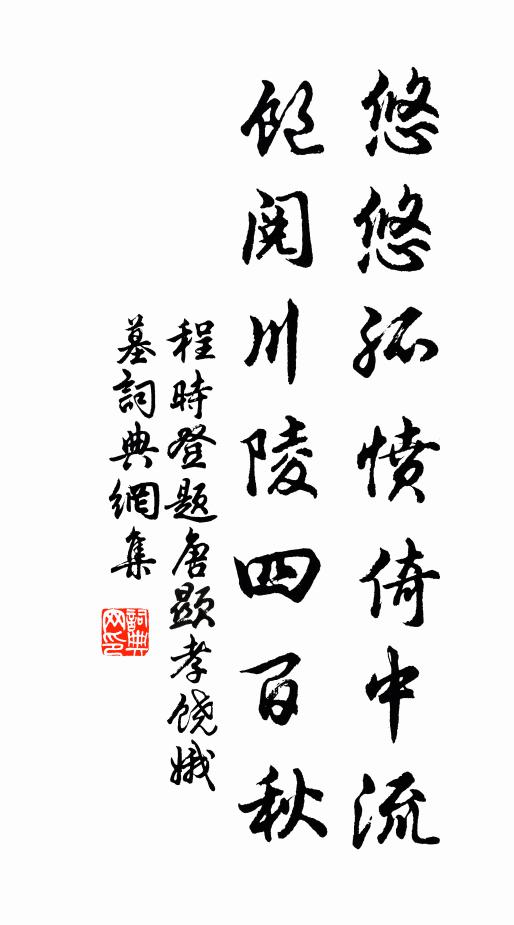 悠悠孤憤倚中流
飽閱川陵四百秋
程時登题唐顯孝饒娥
墓詞典網集
詞典
网印